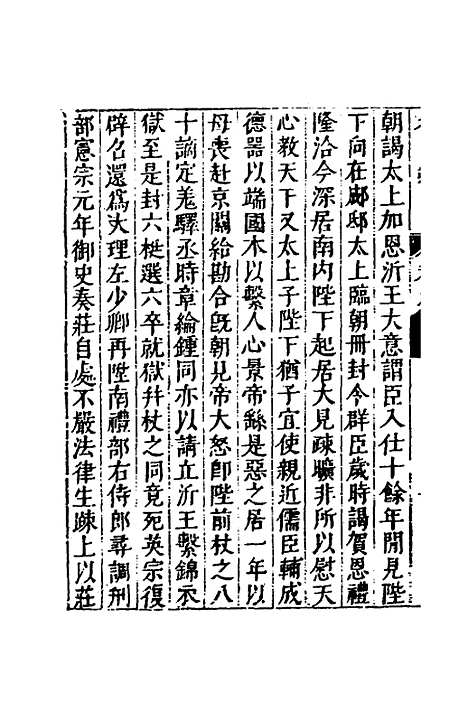 朝謁太上加恩沂王大意謂臣入仕十餘年間見陛
下向在郕邸太上臨朝冊封今群臣歲時謁賀恩禮
隆洽今深居南内陛下起居大見疎曠非所以慰天
心教天下又太上子陛下猶子宜使親近儒臣輔成
德器以端國本以繫人心景帝繇是惡之居一年以
母喪赴京關給勘合旣朝見帝大怒卽陛前杖之八
十謫定羗驛丞時章綸鍾同亦以請立沂王繫錦衣
獄至是封六梃選六卒就獄幷杖之同竟死英宗復
辟召還爲大理左少卿再陞南禮部右侍郎尋調刑
部憲宗元年御史奏莊自處不嚴法律生踈上以莊